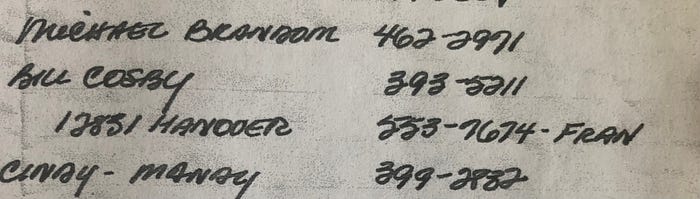 MICHAEL BRANDOM 462-2971
BILL COSBY 393-5211
12831 HANOVER 553-7674-FRAN
CINDY-MANDY 399-2832